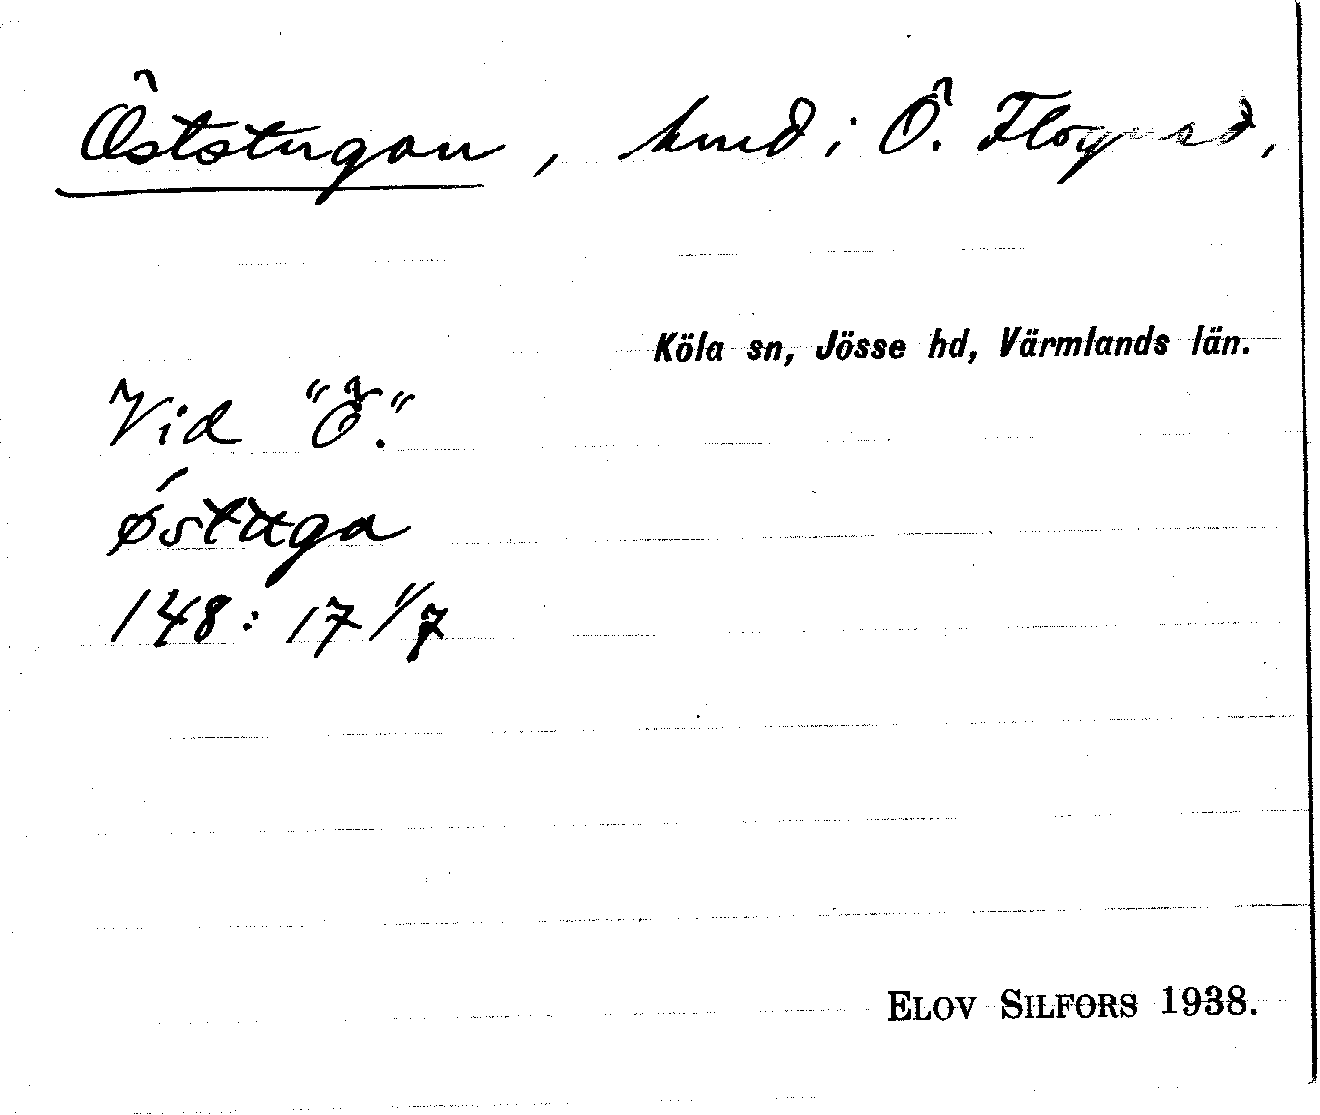 Öststugan, hmd i Ö. Flogned,
Köla sn, Jösse hd, Värmlands län.
Vid "Ö."
østuga
148: 17 1/7
ELOV SILFORS 1938.